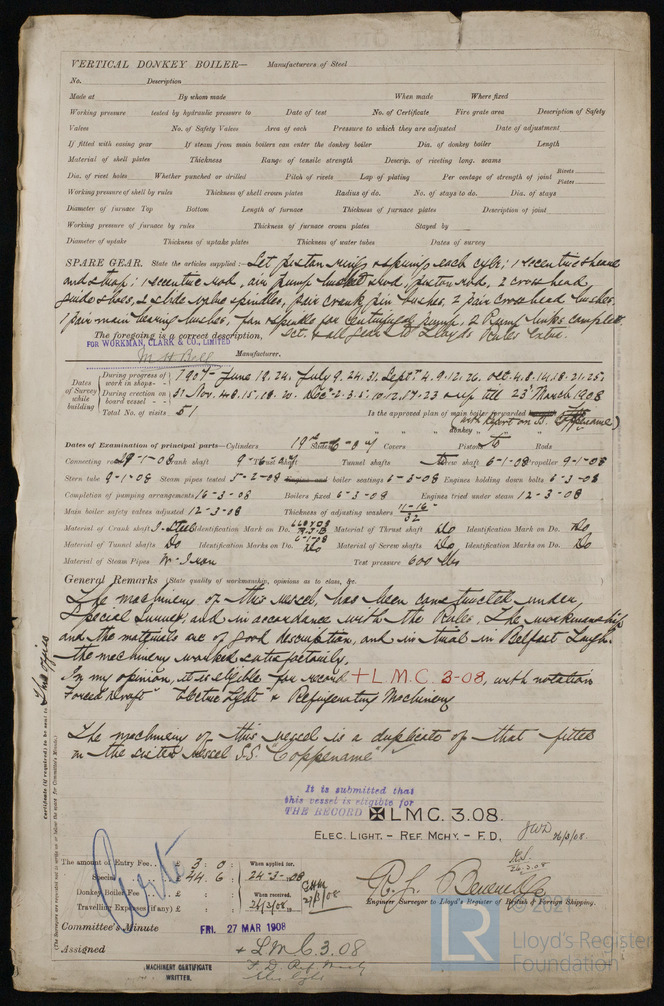 VERTICAL DONKEY BOILER— Manufacturers of Steel
No. Description
Made at By whom made When made Where fixed
Working pressure tested by hydraulic pressure to Date of test No. of Certificate Fire grate area Description of Safety
Valves No. of Safety Valves Area of each Pressure to which they are adjusted Date of adjustment
If fitted with easing gear If steam from main boilers can enter the donkey boiler Dia. of donkey boiler Length
Material of shell plates Thickness Range of tensile strength Descrip. of riveting long. seams
Dia. of rivet holes Whether punched or drilled Pitch of rivets Lap of plating Per centage of strength of joint Rivets Plates
Working pressure of shell by rules Thickness of shell crown plates Radius of do. No. of stays to do. Dia. of stays
Diameter of furnace Top Bottom Length of furnace Thickness of furnace plates Description of joint
Working pressure of furnace by rules Thickness of furnace crown plates Stayed by
Diameter of uptake Thickness of uptake plates Thickness of water tubes Dates of survey
SPARE GEAR. State the articles supplied:— Set piston rings & springs each cylr: 1 eccentric sheave
and strap: 1 eccentric rod, air pump bucket & rod, piston rod, 2 cross head
guide shoes, 2 slide valve spindles, pair crank pin bushes, 2 pair cross head bushes.
1 pair main bearing bushes, fan & spindle for Centrifugal pump, 2 Pump links complete
The foregoing is a correct description, Set. & all gear to Lloyds Rules Extra.
FOR WORKMAN, CLARK & CO., LIMITED
M H Bell Manufacturer.
Dates of Survey while building
During progress of work in shops - - 1907 - June 19. 24. July 9. 24. 31. Sept. 4. 9. 12. 26. Oct. 4. 8. 14. 18. 21. 25.
During erection on board vessel - - 31 Nov. 4. 8. 15. 18. 20. Dec. 2. 3. 5. 10. 12. 17. 23 & up till 23 March 1908
Total No. of visits 51 Is the approved plan of main boiler forwarded
(with Report on SS. Coppename)
donkey
Dates of Examination of principal parts—Cylinders Slides Covers Pistons Do Rods
Connecting rods Crank shaft Thrust shaft Tunnel shafts Screw shaft 6-1-08 Propeller 9-1-08
Stern tube 9-1-08 Steam pipes tested 5-2-08 Engine and boiler seatings 6-3-08 Engines holding down bolts 6-3-08
Completion of pumping arrangements 16-3-08 Boilers fixed 6-3-08 Engines tried under steam 12-3-08
Main boiler safety valves adjusted 12-3-08 Thickness of adjusting washers 11-16 32
Material of Crank shaft I. Steel Identification Mark on Do. Material of Thrust shaft Do Identification Mark on Do. Do
Material of Tunnel shafts Do Identification Marks on Do. Do Material of Screw shafts Do Identification Marks on Do. Do
Material of Steam Pipes W-Iron Test pressure 600 lbs
General Remarks (State quality of workmanship, opinions as to class, &c.
The machinery of this vessel, has been constructed under
Special Survey, and in accordance with the Rules, The workmanship
and the materials are of good description, and on trial in Belfast Lough.
the machinery worked satisfactorily.
In my opinion, it is eligible for record + L.M.C. 3-08, with notation
Forced draft Electric Light & Refrigerating Machinery
The machinery of this vessel is a duplicate of that fitted
in the sister vessel S.S. "Coppename"
It is submitted that
this vessel is eligible for
THE RECORD ✠ LMC. 3.08.
ELEC. LIGHT. - REF. MCHY. - F.D. JWD 26/3/08.
26.3.08
The amount of Entry Fee.. £ 3 : 0 : When applied for.
Special £ 44 : 6 : 24-3-08
Donkey Boiler Fee £ : : When received.
Travelling Expenses (if any) £ : : 26/3/08
27/3/08
Engineer Surveyor to Lloyd's Register of British & Foreign Shipping.
Committee's Minute FRI. 27 MAR 1908
Assigned + L.M.C. 3.08
F.D. Ref. Mchy
Elec Light
MACHINERY CERTIFICATE
WRITTEN.
Certificate (if required) to be sent to This office
(The Surveyors are requested not to write on or below the space for Committee's Minute.)
© 2021
LR
Lloyd's Register
Foundation